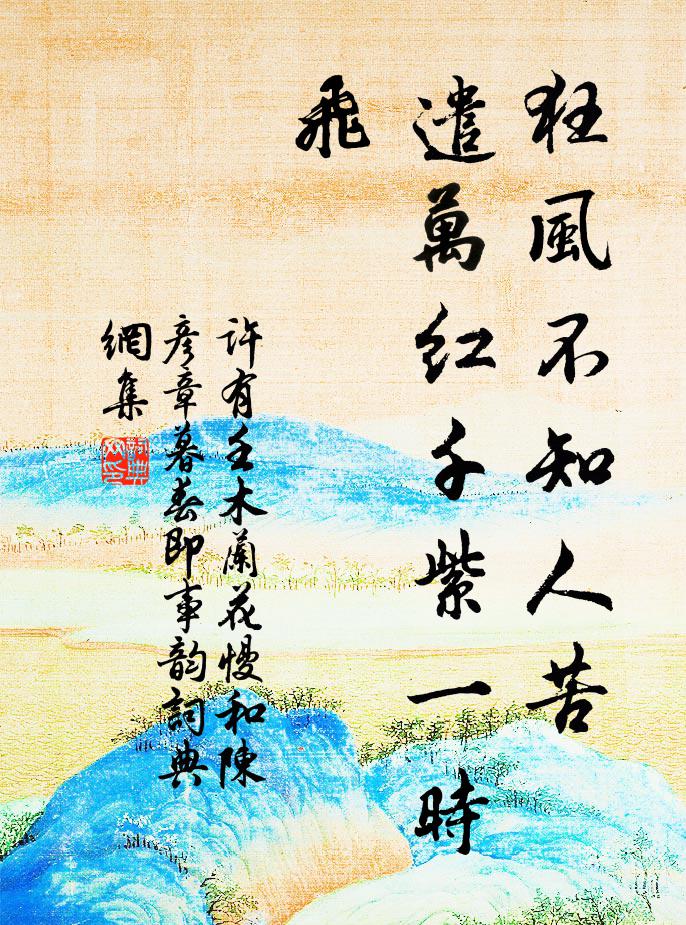 狂風不知人苦
遣萬紅千紫一時
飛
許有壬木蘭花慢和陳
彥章暮春即事韵詞典
網集